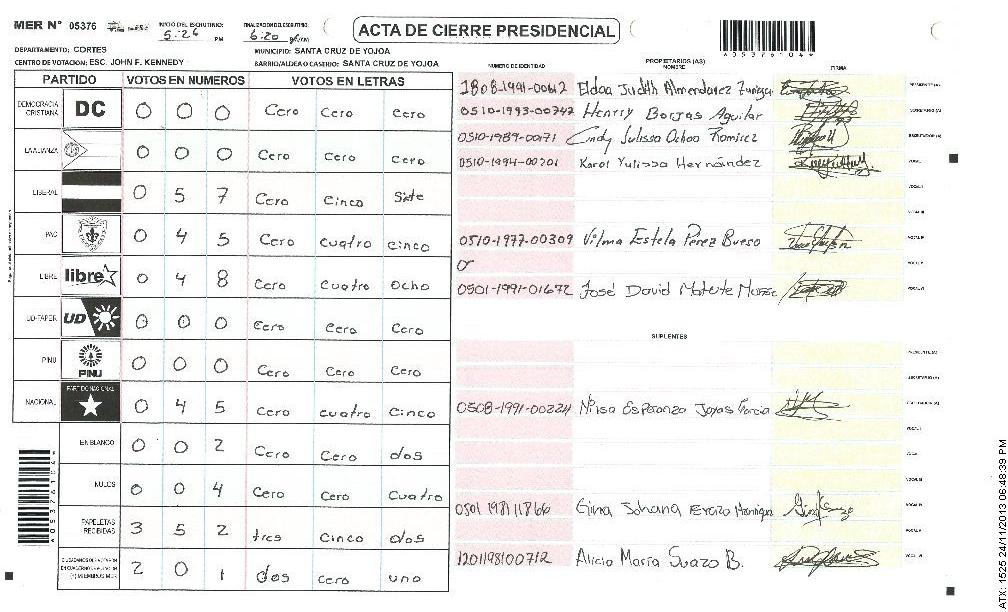 MER N° 05376 INICIO DEL ESCRUTINIO: 5:26 PM FINALIZACION DEL ESCRUTINIO: 6:20 ACTA DE CIERRE PRESIDENCIAL
A05376104
DEPARTAMENTO: CORTES MUNICIPIO: SANTA CRUZ DE YOJOA
CENTRO DE VOTACION: ESC. JOHN F. KENNEDY BARRIO/ALDEA O CASERIO: SANTA CRUZ DE YOJOA
PROPIETARIOS (AS)
NUMERO DE IDENTIDAD NOMBRE FIRMA
PARTIDO VOTOS EN NUMEROS VOTOS EN LETRAS
DEMOCRACIA CRISTIANA DC 0 0 0 Cero Cero cero
LA ALIANZA 0 0 0 Cero Cero Cero
LIBERAL 0 5 7 Cero Cinco Siete
PAC 0 4 5 Cero cuatro cinco
LIBRE libre 0 4 8 Cero Cuatro Ocho
UD-FAPER UD 0 0 0 Cero Cero Cero
PINU PINU 0 0 0 Cero Cero Cero
NACIONAL PARTIDO NACIONAL 0 4 5 Cero cuatro Cinco
EN BLANCO 0 0 2 Cero Cero dos
NULOS 0 0 4 Cero Cero Cuatro
PAPELETAS RECIBIDAS 3 5 2 tres Cinco dos
2 0 1 dos cero uno
1808-1991-00612 Eldaa Judith Almendarez Zuniga PRESIDENTE (A)
0510-1993-00742 Henrry Borjas Aguilar SECRETARIO (A)
0510-1989-00171 Cindy Julissa Ochoa Ramirez ESCRUTADOR (A)
0510-1994-00701 Karol Yulissa Hernández VOCAL I
VOCAL II
VOCAL III
0510-1977-00309 Vilma Estela Pérez Bueso VOCAL IV
VOCAL V
0501-1991-01672 José David Matute VOCAL VI
SUPLENTES
PRESIDENTE (A)
SECRETARIO (A)
0508-1991-00224 Nilsa Esperanza Garcia ESCRUTADOR (A)
VOCAL I
VOCAL II
VOCAL III
0501 1981 1866 Gina Johana Erazo VOCAL IV
VOCAL V
1201198100712 Alicia María Suazo B. VOCAL VI
A05376104
ATX: 1525 24/11/2013 06:48:39 PM